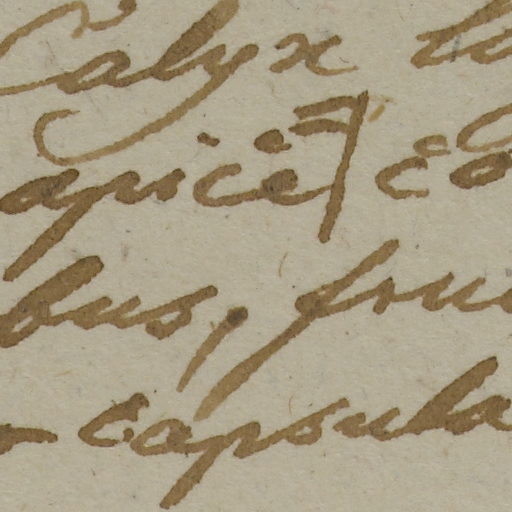 Calyx
apice
bus, fru
capsula